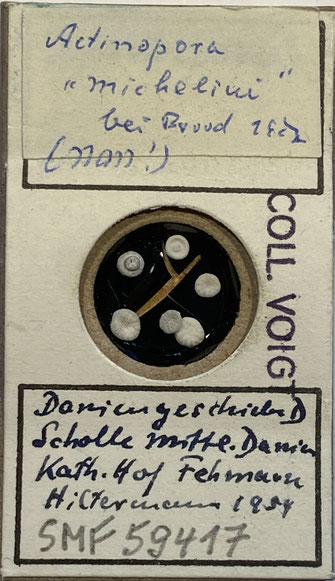 Actinopora
„michelini“
bei Brood 1972
(non!)
COLL. VOIGT
Daniengeschiebe D
Scholle mittl. Danien
Kath. Hof Fehmarn
Hiltermann 1954
SMF 59417